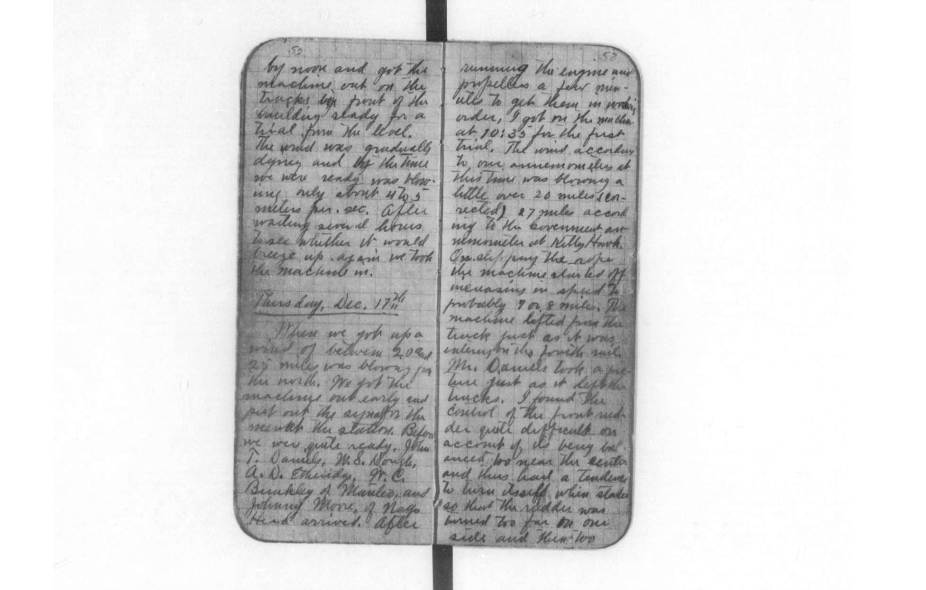 by noon and got the
machine out on the
tracks in front of the
building ready for a
trial from the level.
The wind was gradually
dying and by the time
we were ready was blow-
ing only about 4 to 5
meters per. sec. After
waiting several hours
to see whether it would
breeze up again we took
the machine in.
Thursday, Dec. 17th
When we got up a
wind of between 20 and
25 miles was blowing from
the north. We got the
machine out early and
put out the signal for the
men at the station. Before
we were quite ready, John
T. Daniels, W.S. Dough,
A.D. Etheridge, W.C.
Brinkley of Manteo, and
Johnny Moore, of Nags
Head arrived. After
running the engine and
propellers a few min-
utes to get them in working
order, I got on the machine
at 10:35 for the first
trial. The wind according
to our anemometer at
this time was blowing a
little over 20 miles (cor-
rected) 27 miles accord
ing to the Government an-
emometer at Kitty Hawk.
On slipping the rope
the machine started off
increasing in speed to
probably 7 or 8 miles. The
machine lifted from the
truck just as it was
entering on the fourth rail.
Mr. Daniels took a pic
ture just as it left the
tracks. I found the
control of the front rud-
der quite difficult on
account of its being bal
anced too near the center
and thus had a tendency
to turn itself when started
so that the rudder was
turned too far on one
side and then too